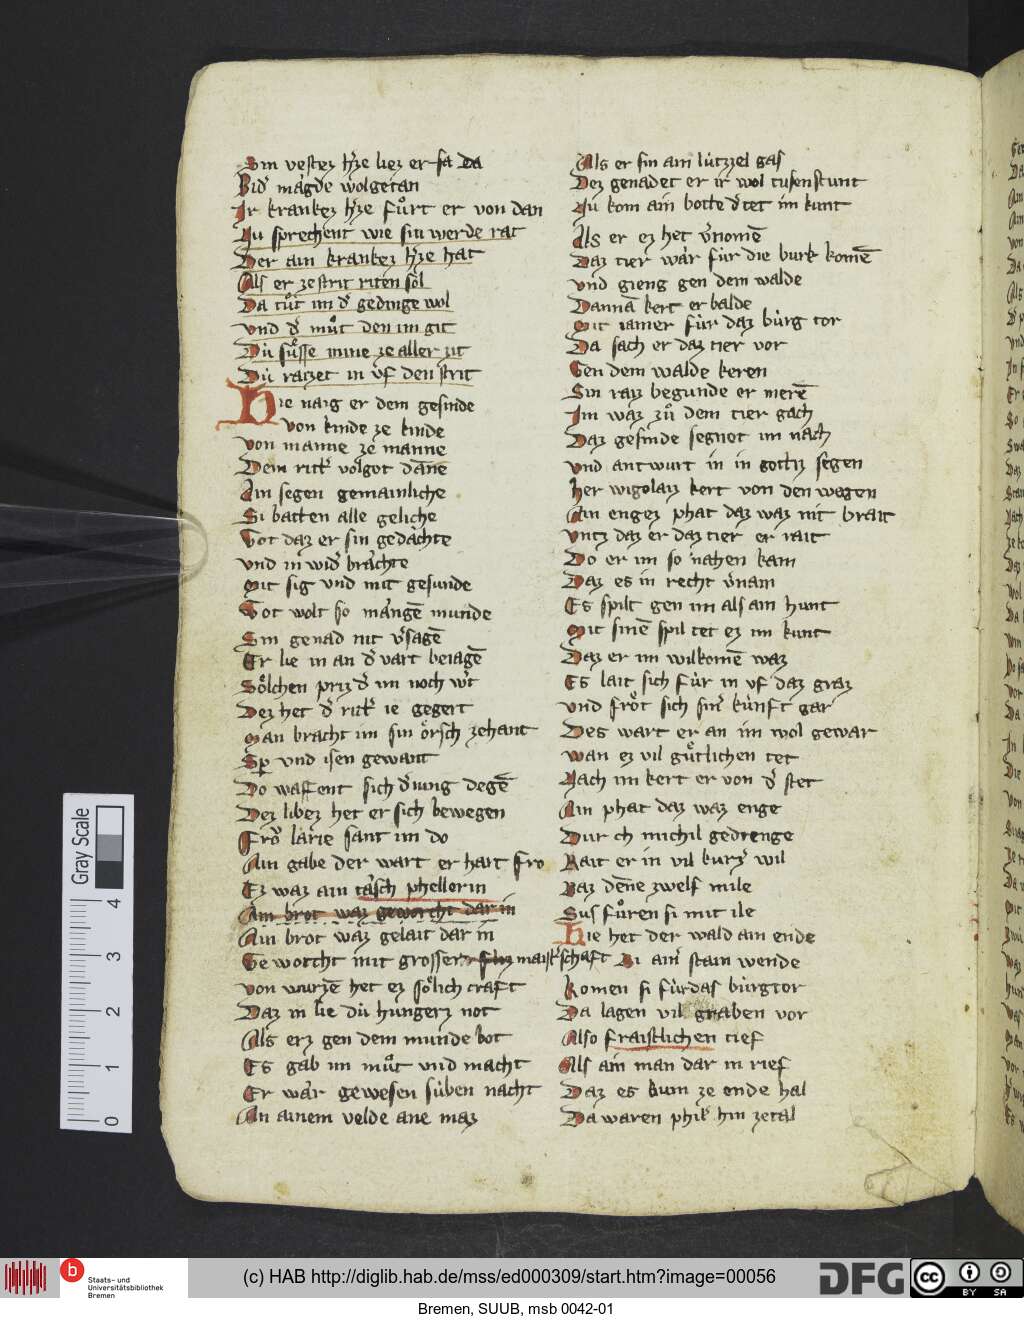 Sin vestez h'ze liez er sa da
Bid' mägde wolgetan
Ir krankez h'ze fuͦrt er von dan
Nu sprechent wie sin werde rat
Der ain krankez h'ze hat
Als er ze strit riten sol
Da tuͦt im d' gedinge wol
Vnd d' muͦt den im git
Dú suͤsse mine ze aller zit
Dú raizet in vf den strit
Hie naig er dem gesinde
von kinde ze kinde
von manne ze manne
Dem ritt' volgot dane
Ain segen gemainliche
Si batten alle geliche
Got daz er sin gedächte
vnd in wid' brächte
Mit sig vnd mit gesunde
Got wolt so mangē munde
Sin genad nit v'sagē
Er lie in an d' vart beiagē
Sölchen priz d' im noch w't
Dez het d' ritt' ie gegert
Man bracht im sin örsch zehant
Sp vnd isen gewant
Do waffent sich d' iung degē
Dez libez het er sich bewegen
Froͮ larie sant im do
Ain gabe der wart er hart fro
Ez waz ain täsch phellerin
Ain brot waz geworcht dar in
Ain brot waz gelait dar in
Geworcht mit grosser maist'schaft
von wurzē het ez sölich craft
Daz in lie dú hungerz not
Als erz gen dem munde bot
Es gab im muͦt vnd macht
Er wär gewesen súben nacht
An ainem velde ane maz
Als er sin ain lútzzel gas
Dez genadet er ir wol tusenstunt
Nu kom ain botte d' tet im kunt
Als er ez het v'nomē
Daz tier wär fúr die burk komē
vnd gieng gen dem walde
Dannā kert er balde
Mit iamer fúr daz búrg tor
Da sach er daz tier vor
Gen dem walde keren
Sin raiz begunde er merē
Im waz zuͦ dem tier gach
Daz gesinde segnot im nach
vnd antwurt in in gottz segen
her wigolaiz kert von den wegen
Ain engez phat daz waz nit brait
vntz daz er daz tier er rait
Do er im so nahen kam
Daz es in recht v'nam
Es spilt gen im als ain hunt
Mit sinē spil tet ez im kunt
Daz er im wilkomē waz
Es lait sich fúr in vf daz graz
vnd froͤt sich sin' kúnft gar
Des wart er an im wol gewar
wan ez vil guͤtlichen tet
Nach im kert er von d' stet
Ain phat daz waz enge
Durch michil gedrenge
Rait er in vil kurz' wil
Baz dēne zwelf mile
Sus fuͦren si mit ile
Hie het der wald ain ende
Bi ain' stain wende
Komen si fúr das búrgtor
Da lagen vil graben vor
Also fraistlichen tief
Als ain man dar in rief
Daz es kum ze ende hal
Da waren phil' hin zetal
Gray Scale
4
3
2
1
0
b
Staats- und
Universitätsbibliothek
Bremen
(c) HAB http://diglib.hab.de/mss/ed000309/start.htm?image=00056
DFG
cc
BY SA
Bremen, SUUB, msb 0042-01